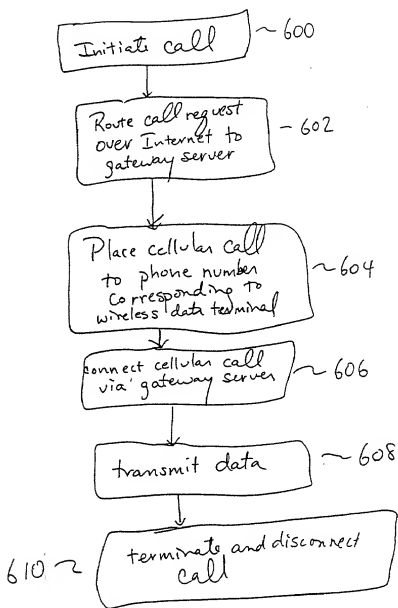 Initiate call
600
Route call request
over Internet to
gateway server
602
Place cellular call
to phone number
corresponding to
wireless data terminal
604
connect cellular call
via gateway server
606
transmit data
608
terminate and disconnect
call
610